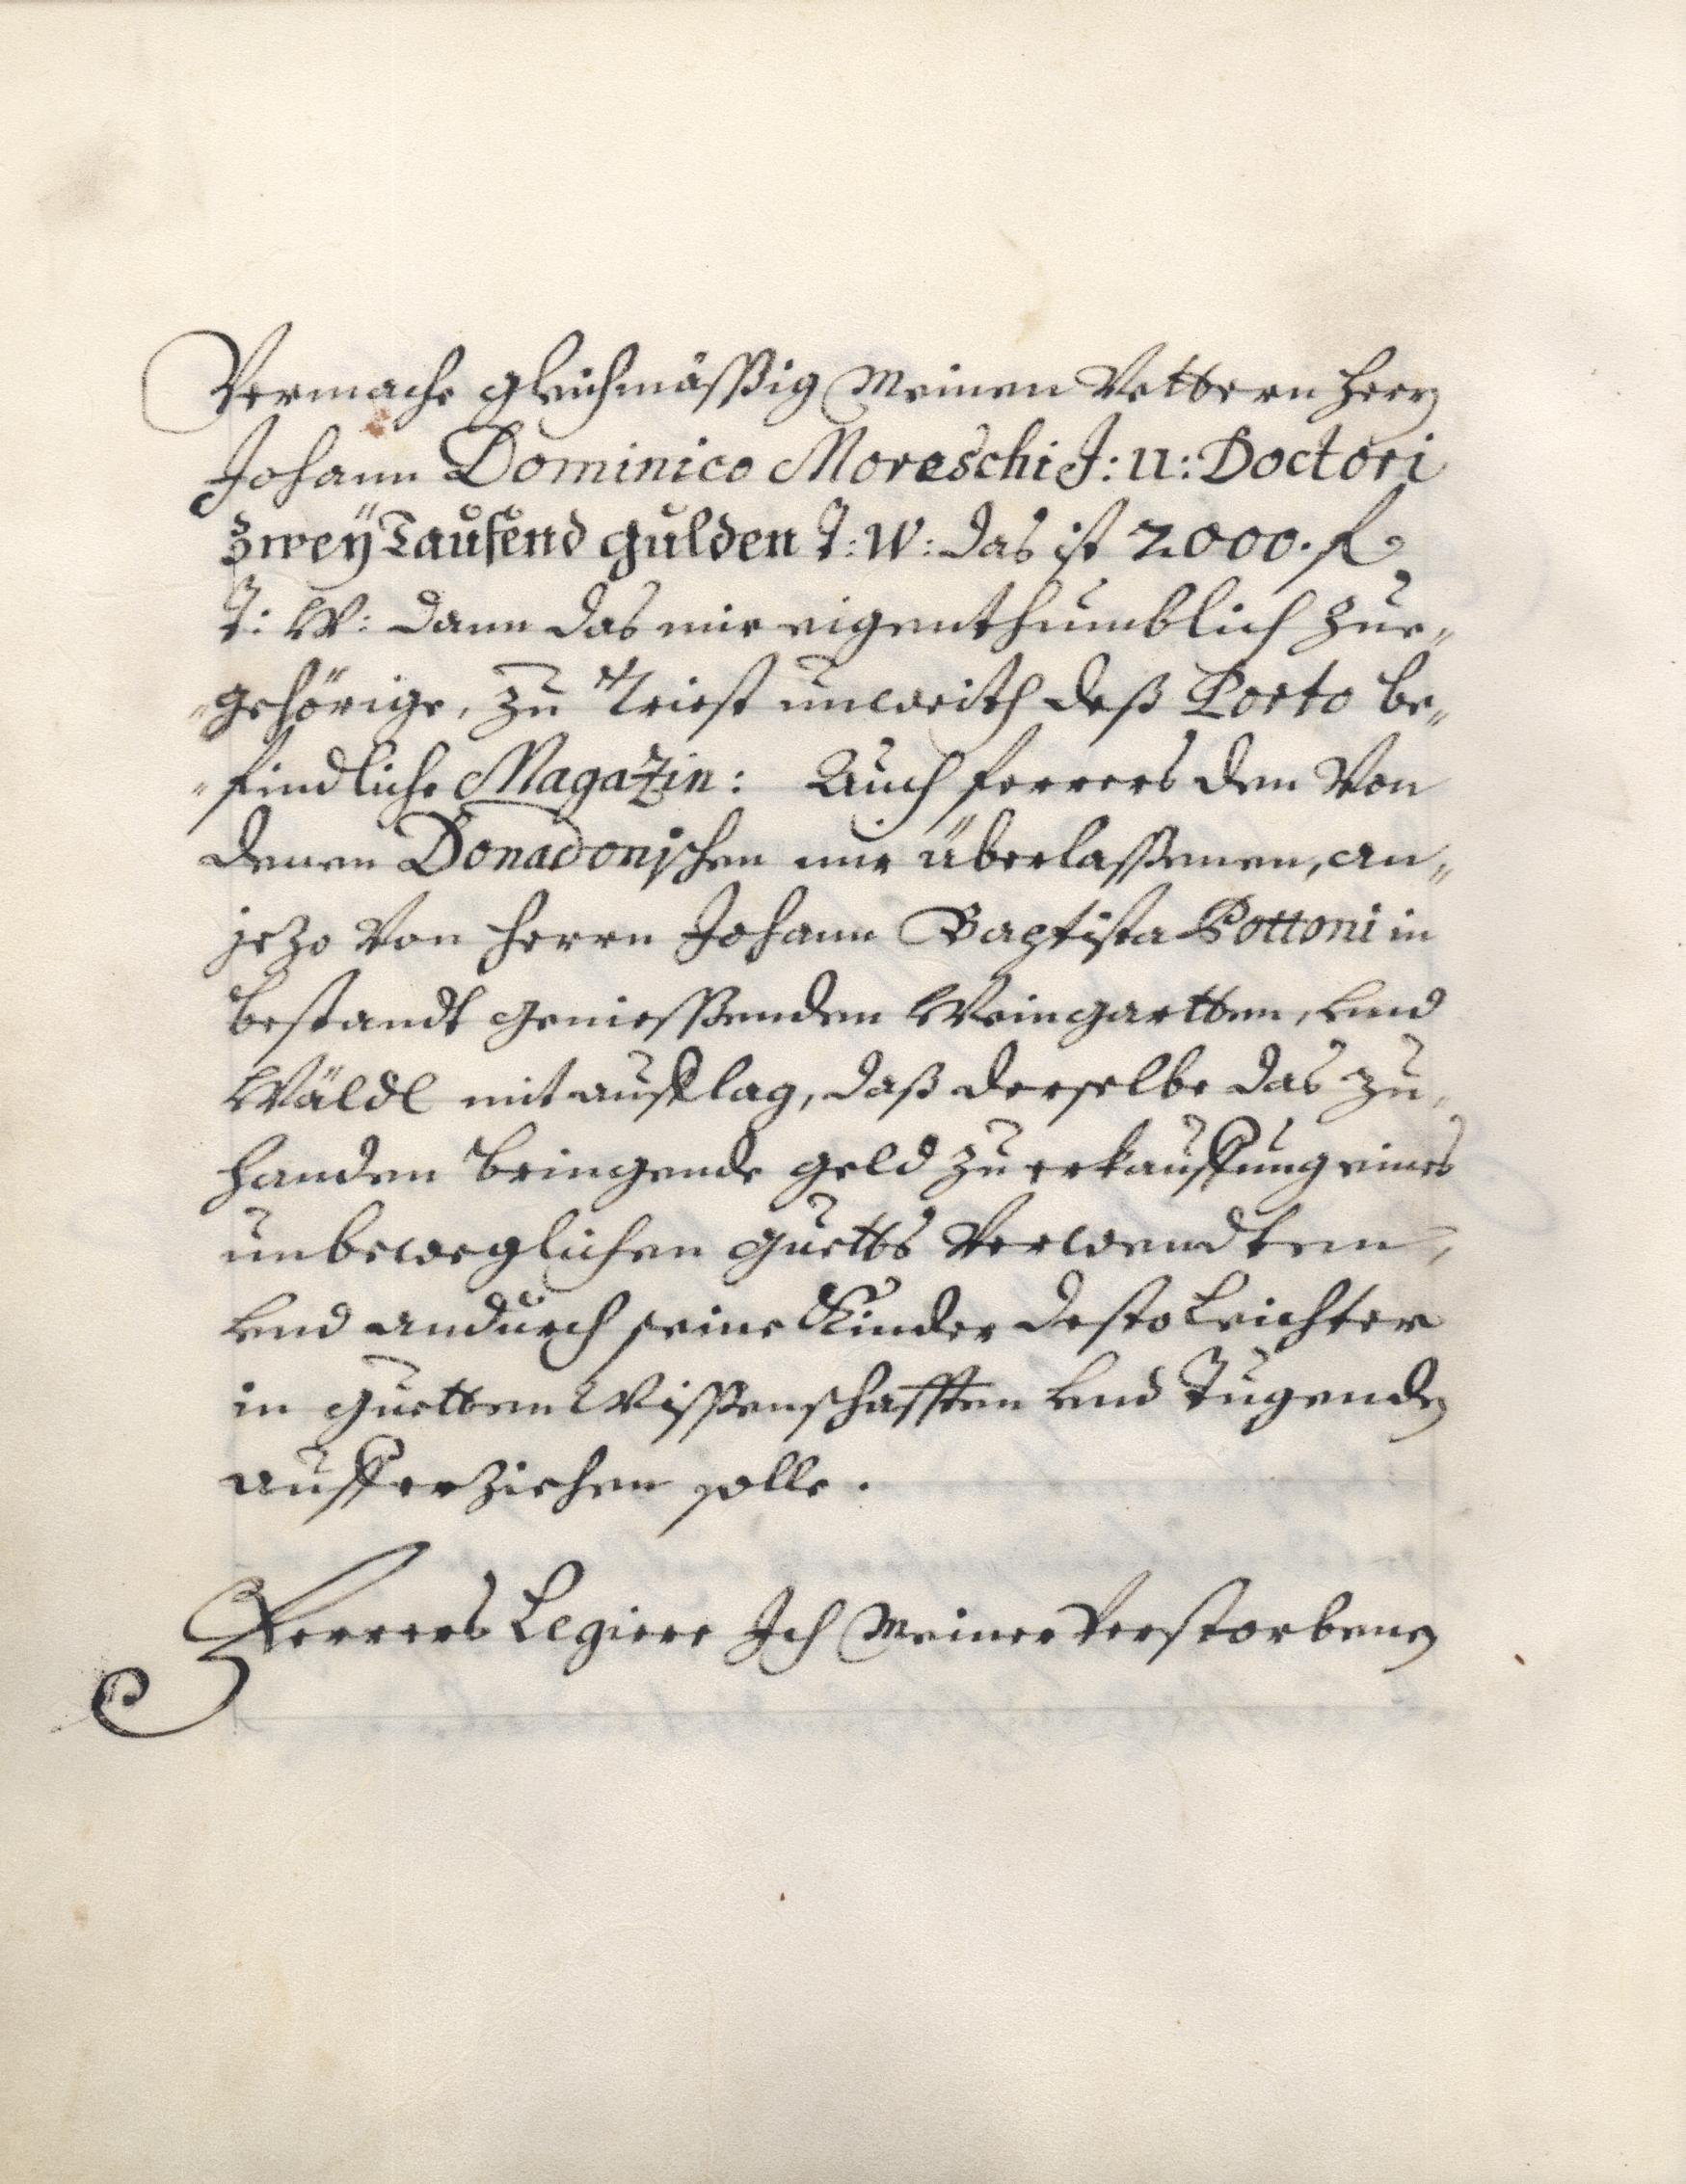 Vermache gleichmässig Meinen Vettern Herrn
Johann Dominico Moreschi J: U: Doctori
Zweÿ Tausend gulden T: W: das ist 2000. f
T: W: dann das mir eigenthumblich zue„
„gehörige, zu Triest unweith deß Porto be„
„findliche Magazin: Auch ferrers den Von
denen Donadonischen mir überlassenen, an„
jezo Von Herrn Johann Baptista Pottoni in
bestandt geniessenden Weingartten, und
Wäldl mit aufflag, daß derselbe das zu„
handen bringende geld zu erkauffung eines
unbeweglichen guetts Verwendten,
und andurch seine Kinder desto Leichter
in guetten Wissenschafften und Tugenden
aufferziehen solle.
Ferrers Legiere Ich Meiner Verstorbenen